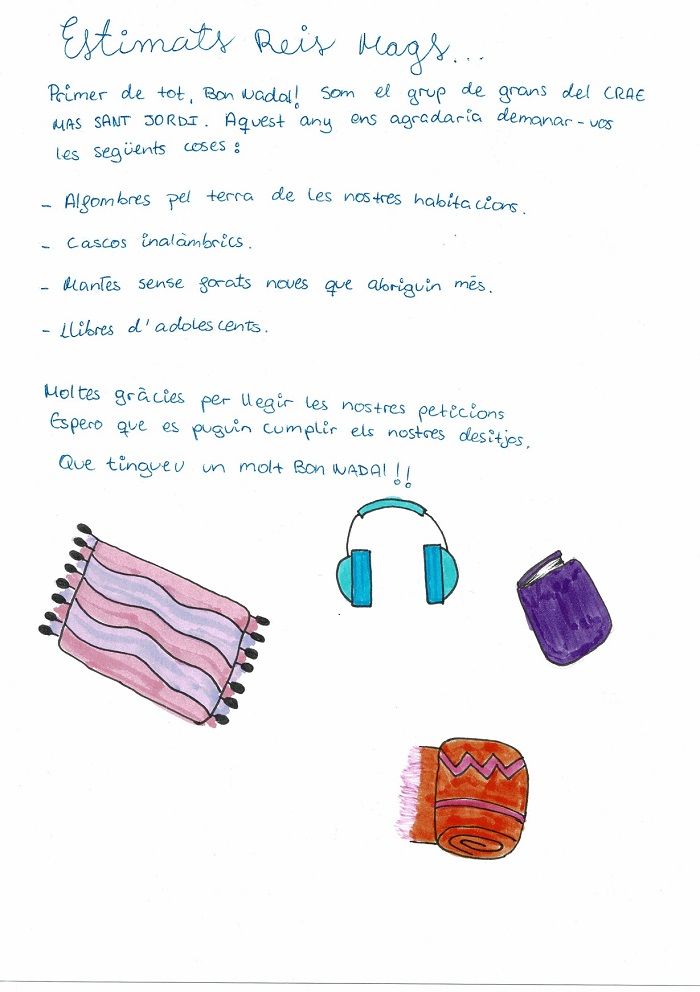 Estimats Reis Mags...
Primer de tot, Bon Nadal! Som el grup de grans del CRAE
MAS SANT JORDI. Aquest any ens agradaria demanar-vos
les següents coses:
- Algombres pel terra de les nostres habitacions.
- Cascos inalàmbrics.
- Mantes sense forats noves que abriguin més.
- Llibres d'adolescents.
Moltes gràcies per llegir les nostres peticions
Espero que es puguin cumplir els nostres desitjos.
Que tingueu un molt Bon NADAl!!